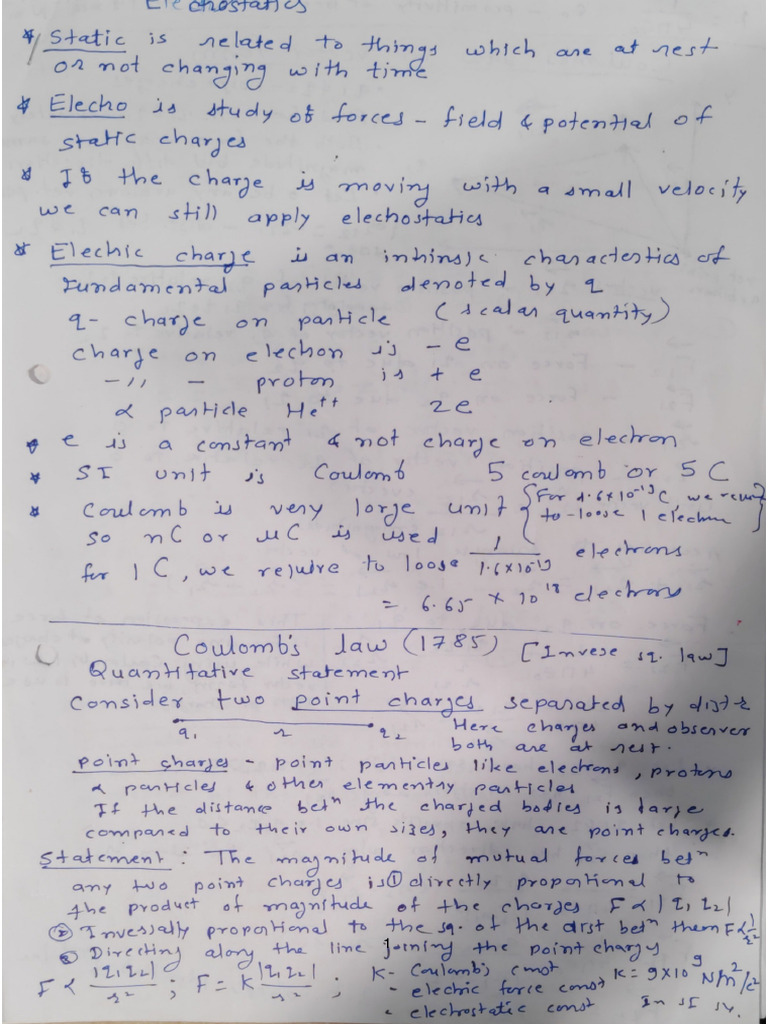 Electrostatics
* Static is related to things which are at rest
or not changing with time
* Electro is study of forces - field & potential of
static charges
* If the charge is moving with a small velocity
we can still apply electrostatics
* Electric charge is an intrinsic characterstics of
Fundamental particles denoted by q
q- charge on particle (scalar quantity)
charge on electron is - e
-〃- proton is + e
α particle He⁺⁺ 2e
* e is a constant & not charge on electron
* SI unit is Coulomb 5 coulomb or 5 C
* Coulomb is very large unit {For 1.6×10⁻¹⁹C, we require
to loose 1 electron}
so nC or μC is used
for 1 C, we require to loose 1/1.6×10⁻¹⁹ electrons
= 6.65 × 10¹⁸ electrons
Coulomb's law (1785) [Invese sq. law]
Quantitative statement
Consider two point charges separated by dist r
q₁ r q₂ Here charges and observer
both are at rest.
point charges - point particles like electrons, protons
α particles & other elementry particles
If the distance betⁿ the charged bodies is large
compared to their own sizes, they are point charges.
Statement: The magnitude of mutual forces betⁿ
any two point charges is ① directly propotional to
the product of magnitude of the charges F α |q₁q₂|
② Inversally propotional to the sq. of the dist betⁿ them F α 1/r²
③ Directing along the line joining the point charges
F α |q₁q₂|/r² ; F = K |q₁q₂|/r² ; K- Coulomb's const K = 9×10⁹ N/m²/c²
- electric force const
- electrostatic const In SI sy.